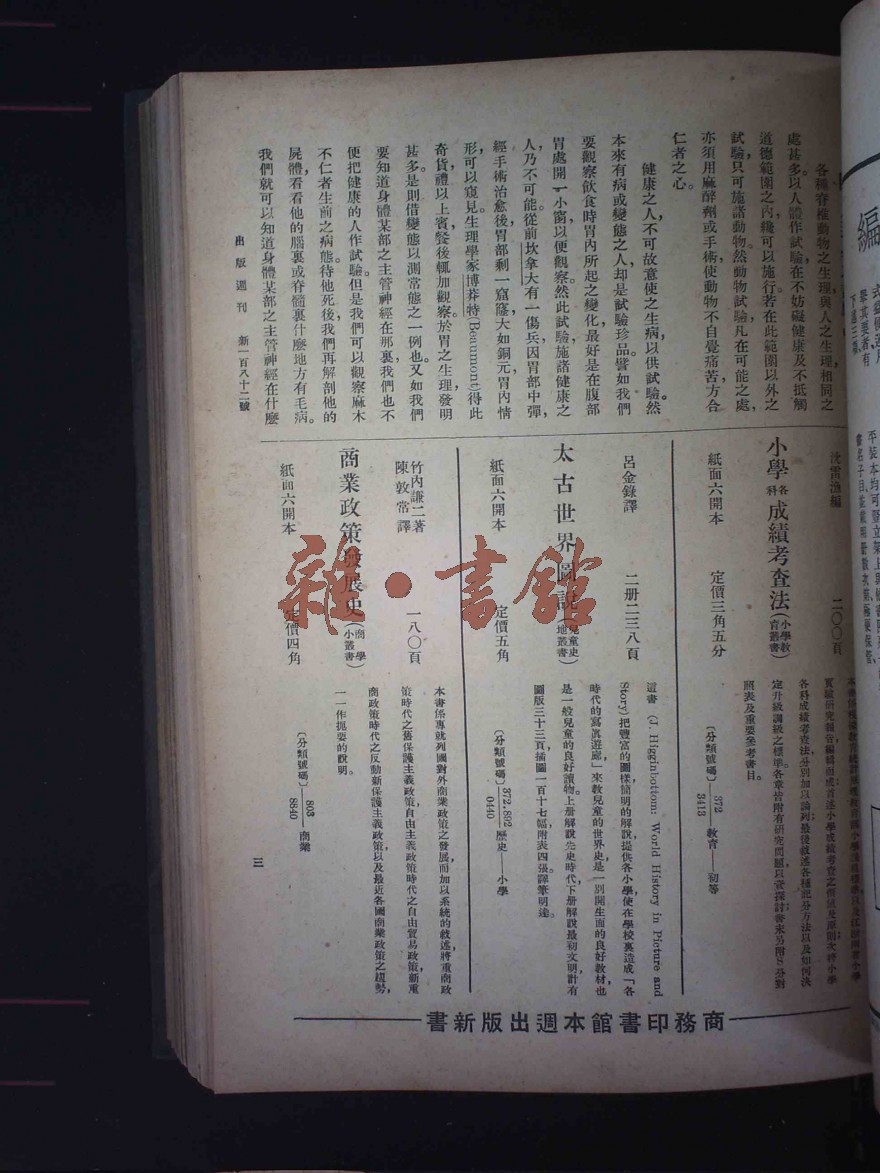 各種脊椎動物之生理，與人之生理，相同之
處甚多。以人體作試驗，在不妨礙健康及不抵觸
道德範圍之內，纔可以施行。若在此範圍以外之
試驗，只可施諸動物。然動物試驗，凡在可能之處，
亦須用麻醉劑或手術，使動物不自覺痛苦，方合
仁者之心。
健康之人，不可故意使之生病，以供試驗。然
本來有病或變態之人，却是試驗珍品。譬如我們
要觀察飲食時胃內所起之變化，最好是在腹部
胃處開一小窗，以便觀察。然此試驗施諸健康之
人，乃不可能。從前坎拿大有一傷兵，因胃部中彈，
經手術治愈後，胃部剩一窟窿，大如銅元，胃內情
形，可以窺見。生理學家博莽特(Beaumont)得此
奇貨，禮以上賓，餐後輒加觀察。於胃之生理，發明
甚多。是則借變態以測常態之一例也。又如我們
要知道身體某部之主管神經在那裏，我們也不
便把健康的人作試驗。但是我們可以觀察麻木
不仁者生前之病態，待他死後，我們再解剖他的
屍體，看看他的腦裏或脊髓裏什麼地方有毛病。
我們就可以知道身體某部之主管神經在什麼
出版週刊 新一百八十二號
沈雷漁編 二〇〇頁
小學各科成績考查法（小學教育叢書）
紙面六開本 定價三角五分
實驗研究報告編輯而成，首述小學成績考查之價值及原則，次將小學
各科成績考查法，分別加以論列，最後敘述各種記分方法以及如何決
定升級調級之標準。各章皆附有研究問題，以資探討。書末另附S分對
照表及重要參考書目。
〔分類號碼〕372 3413——教育——初等
呂金錄譯 二册二三八頁
太古世界圖說（兒童史地叢書）
紙面六開本 定價五角
這書 (J. Higginbottom: World History in Picture and
Story) 把豐富的圖樣，簡明的解說，提供各小學，使在學校裏造成「各
時代的寫眞遊廊」，來教兒童的世界史，是一別開生面的良好教材，也
是一般兒童的良好讀物。上册解說先史時代，下册解說最初文明，計有
圖版三十三頁，插圖一百十七幅，附表四張。譯筆明達。
〔分類號碼〕372.892 0440——歷史——小學
竹內謙二著
陳敦常譯 一八〇頁
商業政策發展史（商學小叢書）
紙面六開本 定價四角
本書係專就列國對外商業政策之發展，而加以系統的敘述，將重商政
策時代之舊保護主義政策，自由主義政策時代之自由貿易政策，新重
商政策時代之反動新保護主義政策，以及最近各國商業政策之趨勢，
一一作扼要的說明。
〔分類號碼〕803 8840——商業
三
商務印書館本週出版新書
雜·書館
編